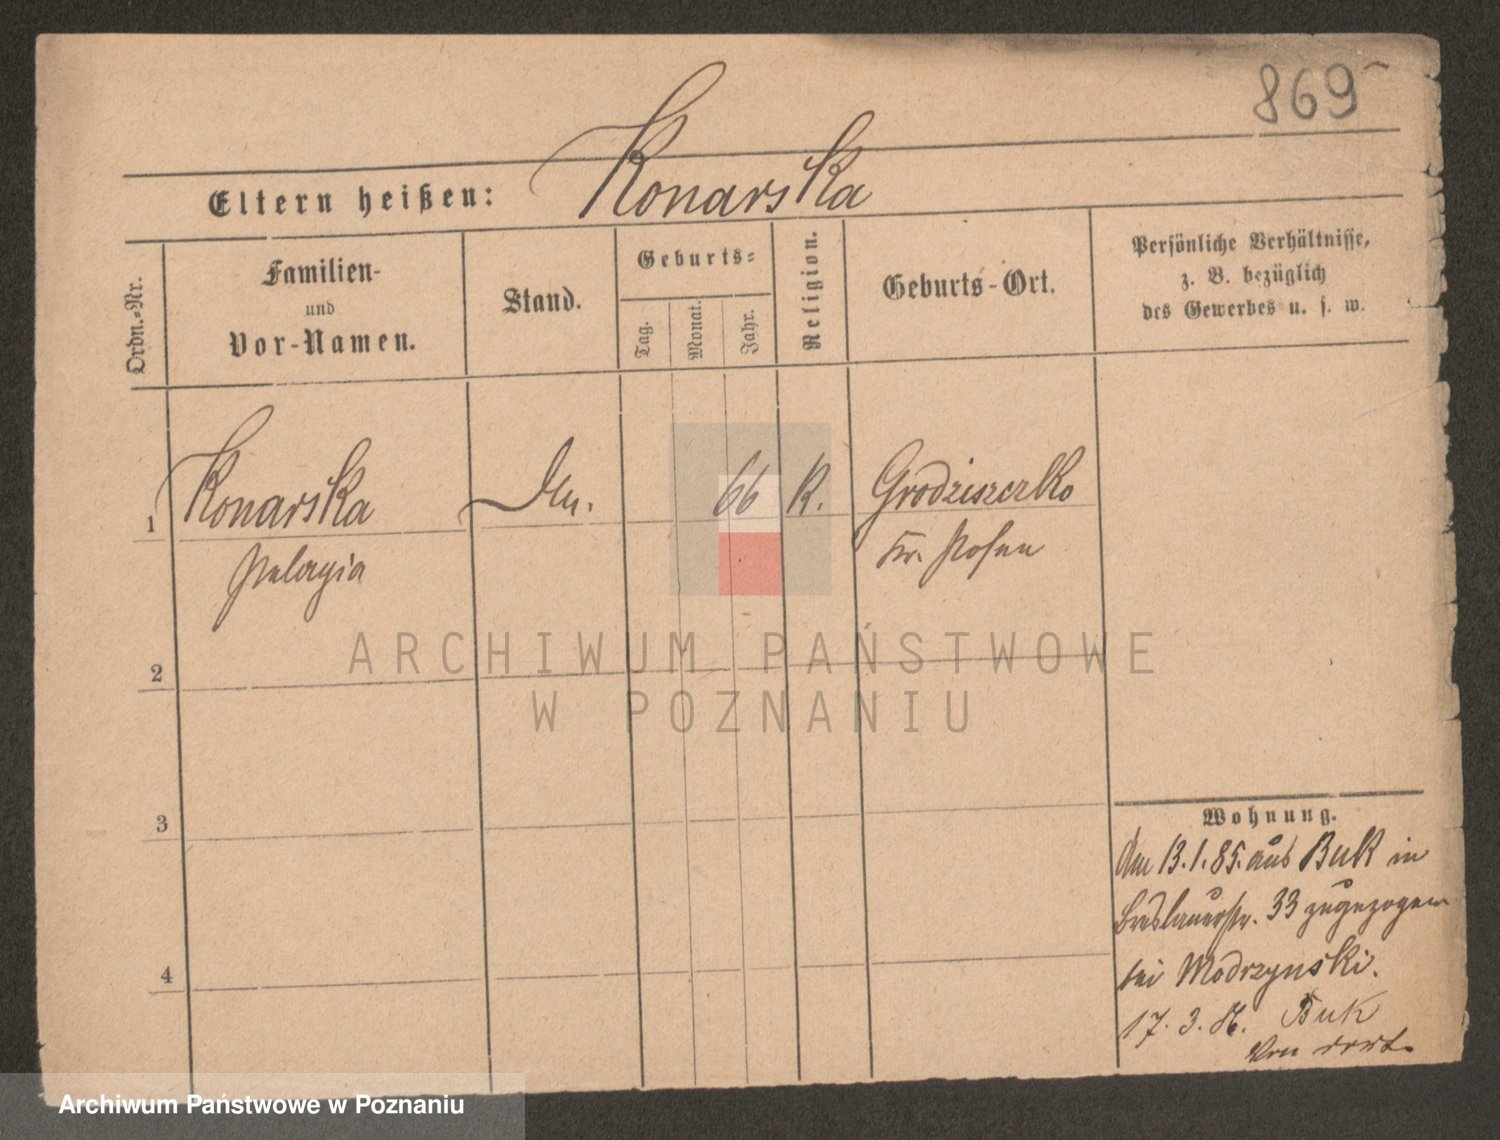 869
Eltern heißen: Konarska
Ordn.-Nr.
Familien-
und
Vor-Namen.
Stand.
Geburts-
Tag.
Monat.
Jahr.
Religion.
Geburts-Ort.
Persönliche Verhältnisse,
z. B. bezüglich
des Gewerbes u. s. w.
1 Konarska 66 K. Grodziszczko
Pelagia Kr. Posen
2
ARCHIWUM PAŃSTWOWE
W POZNANIU
3
4
Wohnung.
Am 13.1.85. aus Buk in
Breslauerstr. 33 zugezogen
bei Modrzynski.
17. 3. 86. Buk
Von dort.
Archiwum Państwowe w Poznaniu